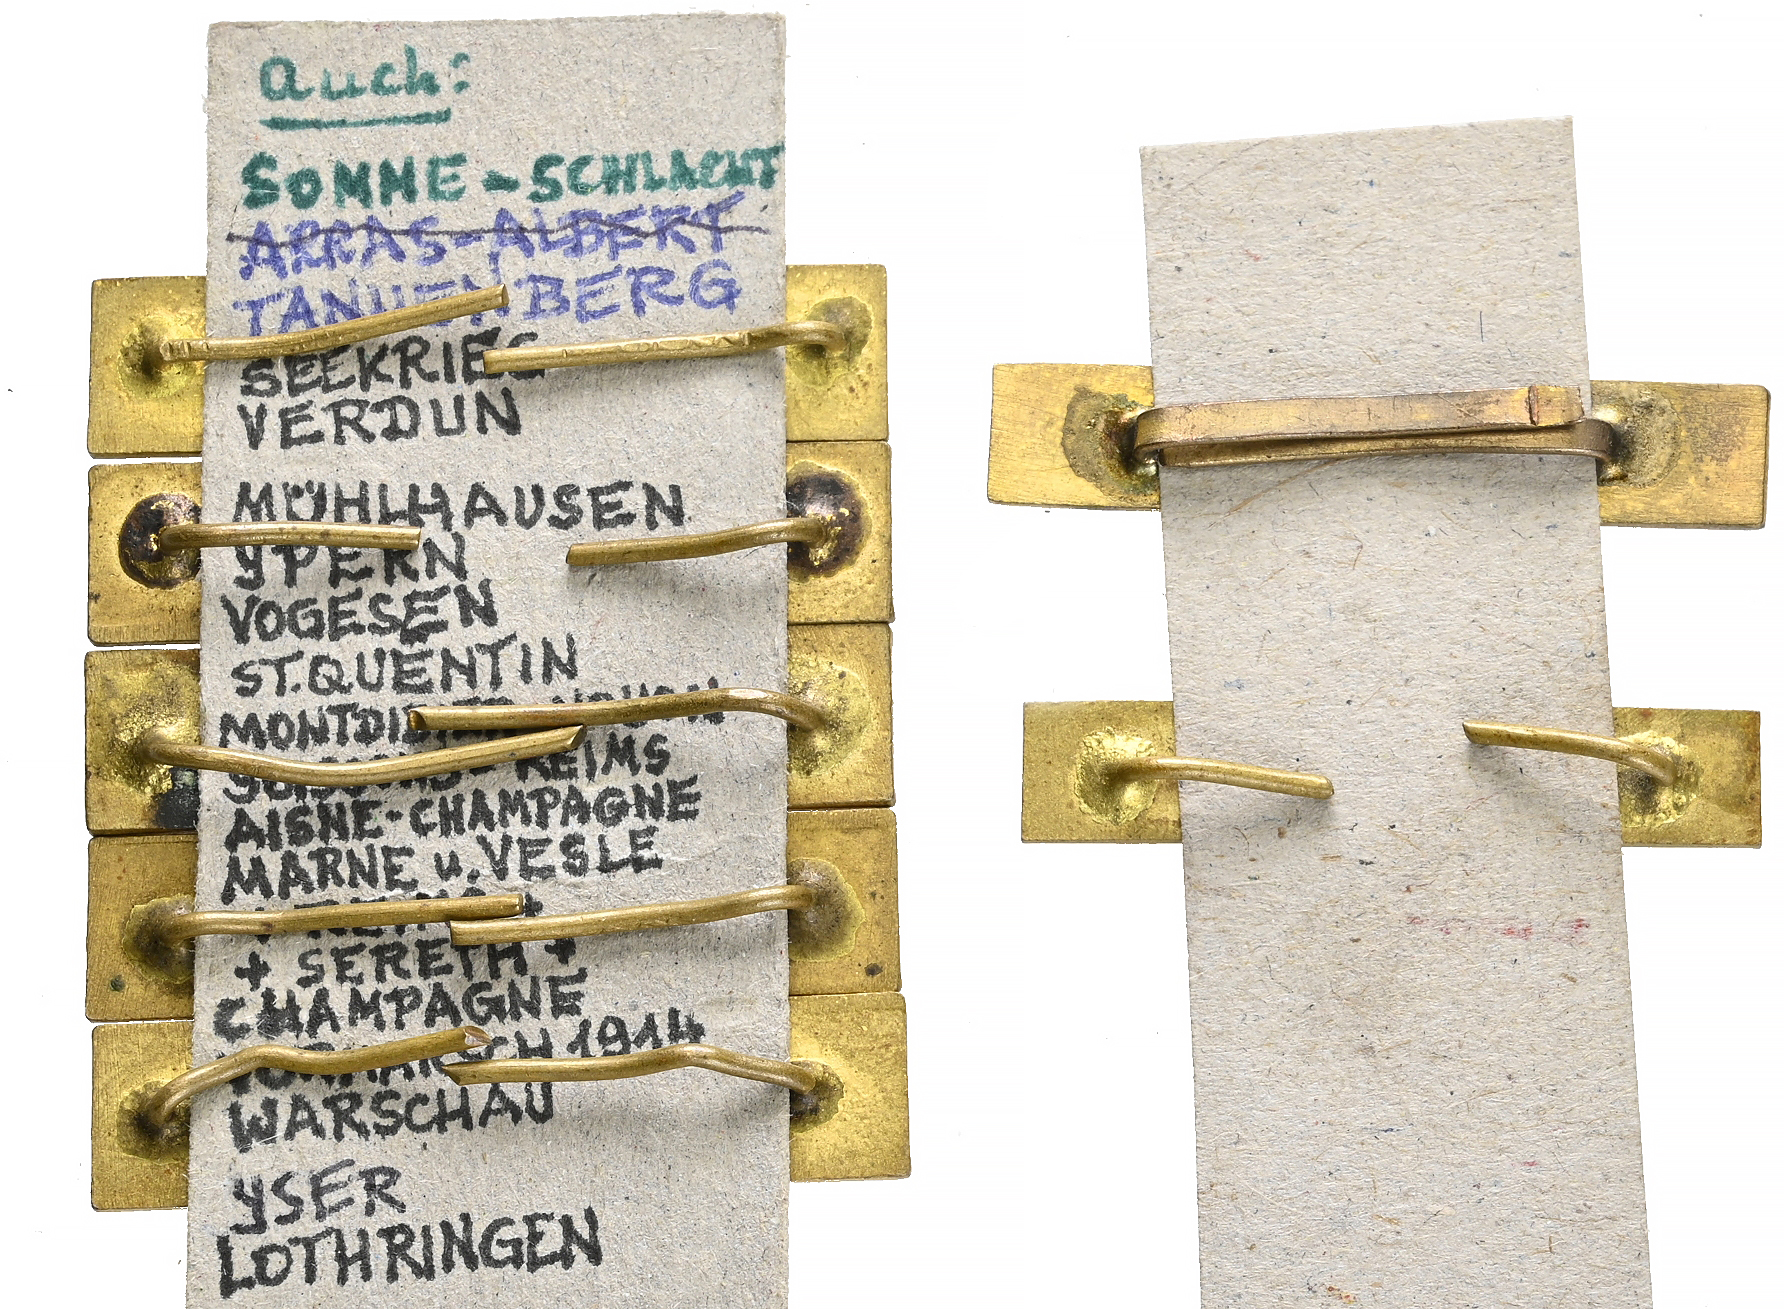 auch:
SOMME-SCHLACHT
ARRAS-ALBERT
TANNENBERG
SEEKRIEG
VERDUN
MÜHLHAUSEN
YPERN
VOGESEN
ST.QUENTIN
REIMS
AISNE-CHAMPAGNE
MARNE u. VESLE
+ SERETH +
CHAMPAGNE
1914
WARSCHAU
YSER
LOTHRINGEN